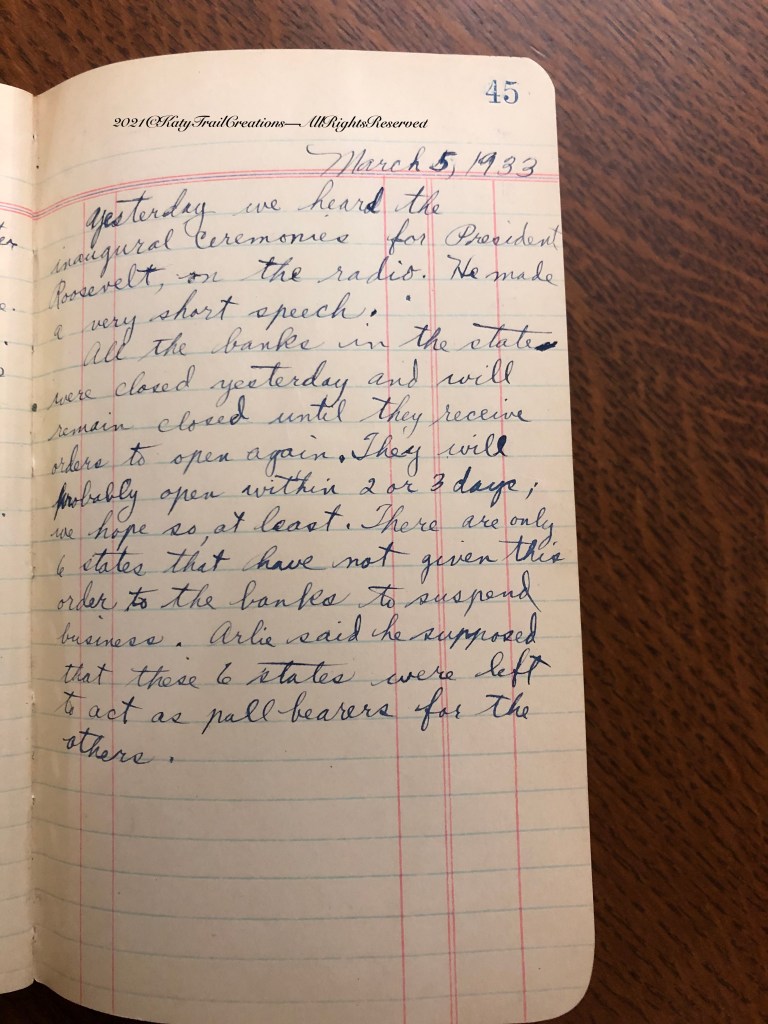 45
2021©KatyTrailCreations—AllRightsReserved
March 5, 1933
Yesterday we heard the
inaugural ceremonies for President
Roosevelt, on the radio. He made
a very short speech.
All the banks in the state
were closed yesterday and will
remain closed until they receive
orders to open again. They will
probably open within 2 or 3 days;
we hope so, at least. There are only
6 states that have not given this
order to the banks to suspend
business. Arlie said he supposed
that these 6 states were left
to act as pall bearers for the
others.